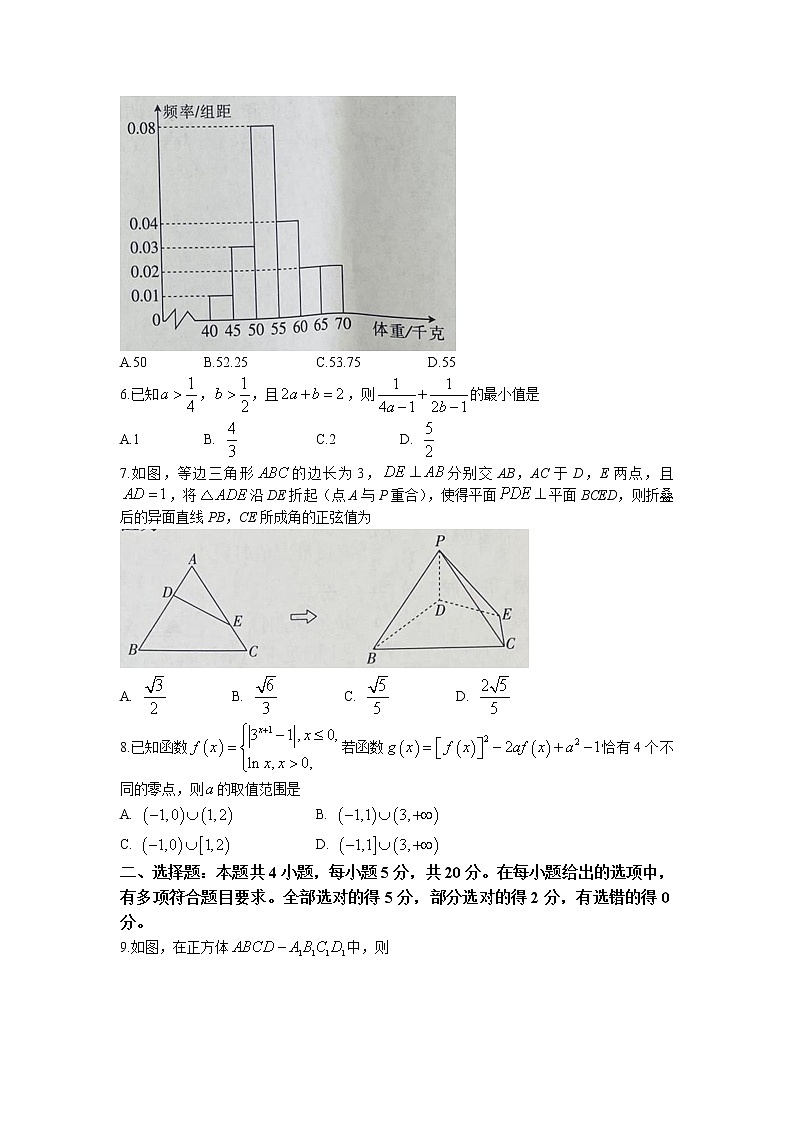 频率/组距
0.08
0.04
0.03
0.02
0.01
0
40 45 50 55 60 65 70 体重/千克
A.50 B.52.25 C.53.75 D.55
6.已知 a > 1/4, b > 1/2, 且 2a + b = 2, 则 1/(4a−1) + 1/(2b−1) 的最小值是
A.1 B. 4/3 C.2 D. 5/2
7.如图,等边三角形 ABC 的边长为 3, DE ⊥ AB 分别交 AB, AC 于 D, E 两点,且
AD = 1, 将 △ADE 沿 DE 折起(点 A 与 P 重合),使得平面 PDE ⊥ 平面 BCED, 则折叠
后的异面直线 PB, CE 所成角的正弦值为
A
D
E
B
C
P
D
E
B
C
A. √3/2 B. √6/3 C. √5/5 D. 2√5/5
8.已知函数 f(x) = { |3^(x+1) − 1|, x ≤ 0, ln x, x > 0, 若函数 g(x) = [f(x)]² − 2af(x) + a² − 1 恰有 4 个不
同的零点,则 a 的取值范围是
A. (−1,0)∪(1,2) B. (−1,1)∪(3,+∞)
C. (−1,0)∪[1,2) D. (−1,1]∪(3,+∞)
二、选择题:本题共 4 小题,每小题 5 分,共 20 分。在每小题给出的选项中,
有多项符合题目要求。全部选对的得 5 分,部分选对的得 2 分,有选错的得 0
分。
9.如图,在正方体 ABCD − A₁B₁C₁D₁ 中,则